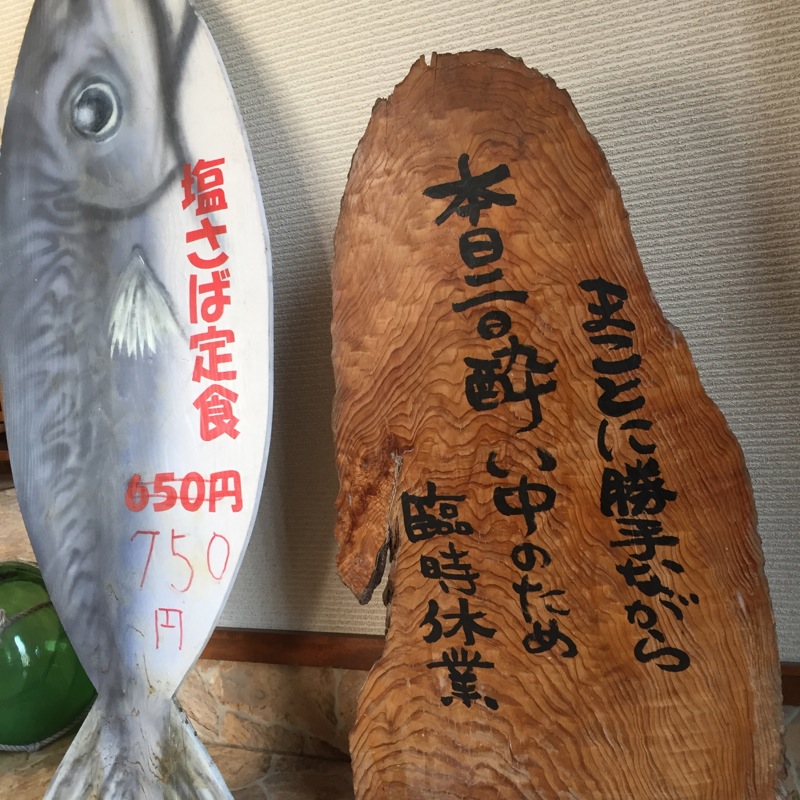 塩さば定食
650円
750
円
まことに勝手ながら
本日二日酔い中のため
臨時休業